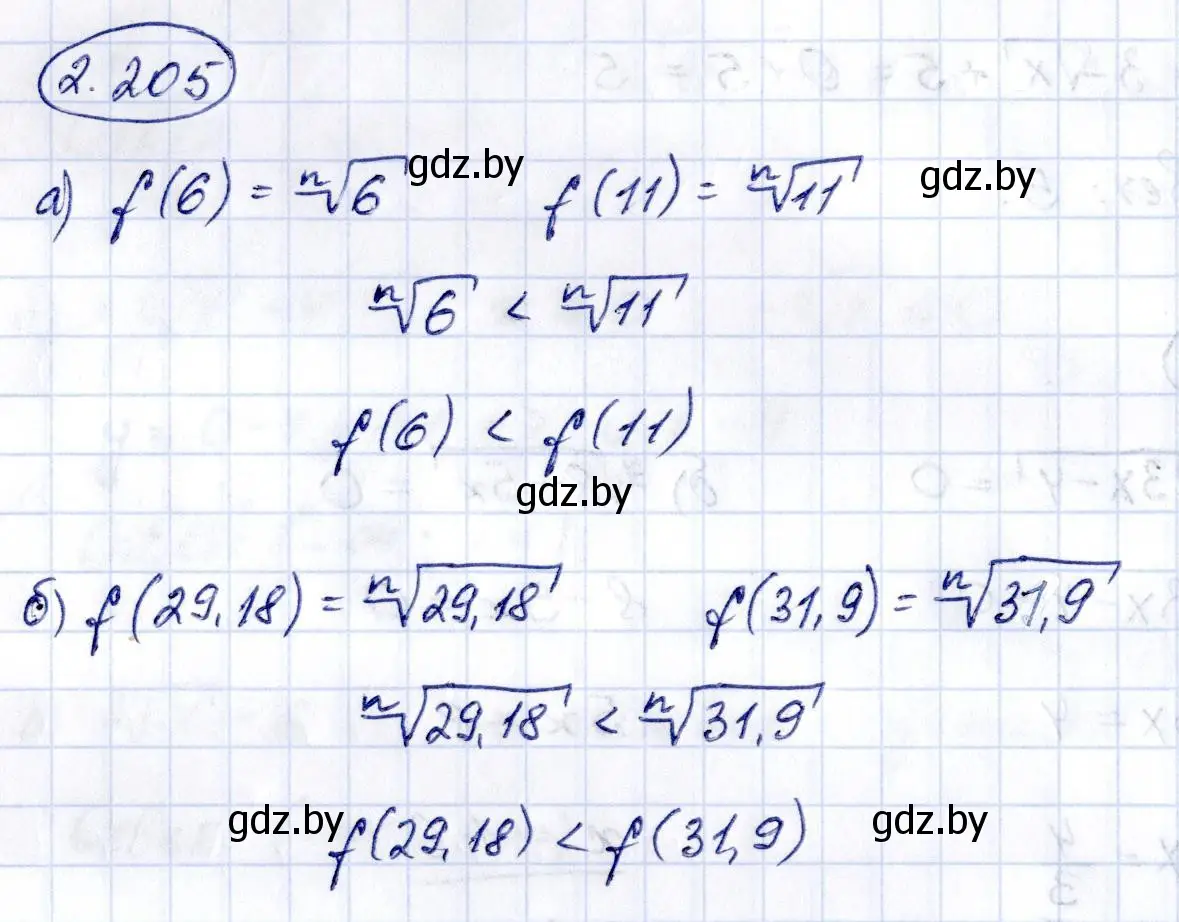 2.205
а) f(6) = ⁿ√6 gdz.by f(11) = ⁿ√11 gdz.by
ⁿ√6 < ⁿ√11
f(6) < f(11)
gdz.by
б) f(29,18) = ⁿ√29,18 f(31,9) = ⁿ√31,9
ⁿ√29,18 < ⁿ√31,9
gdz.by f(29,18) < f(31,9) gdz.by